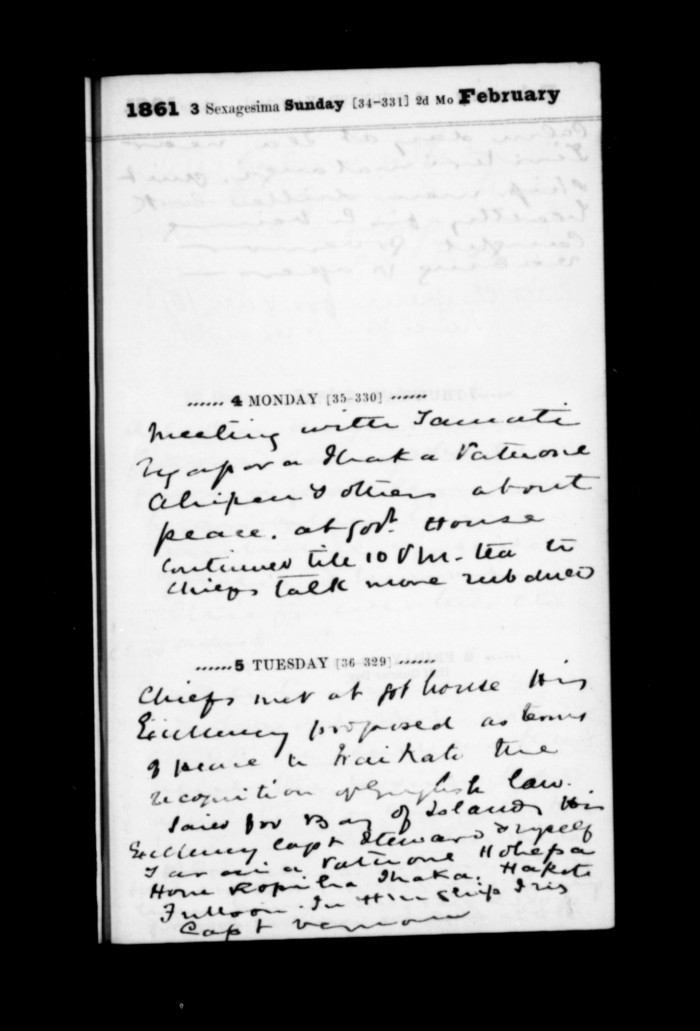 1861 3 Sexagesima Sunday [34-331] 2d Mo February
4 MONDAY [35-330]
Meeting with Tamati
Ngapora Ihaka Patuone
& others about
peace. at Govt House
continued till 10 P.M. tea to
Chiefs talk more subdued
5 TUESDAY [36-329]
Chiefs met at Govt house His
Excellency proposed as terms
of peace to Waikato the
recognition of English law.
Sailed for Bay of Islands His
Excellency Capt Steward & myself
Patuone Hohepa
Hone Ropiha Ihaka. Hakote
Fulloon. In H M Ship Iris
Capt Vernon